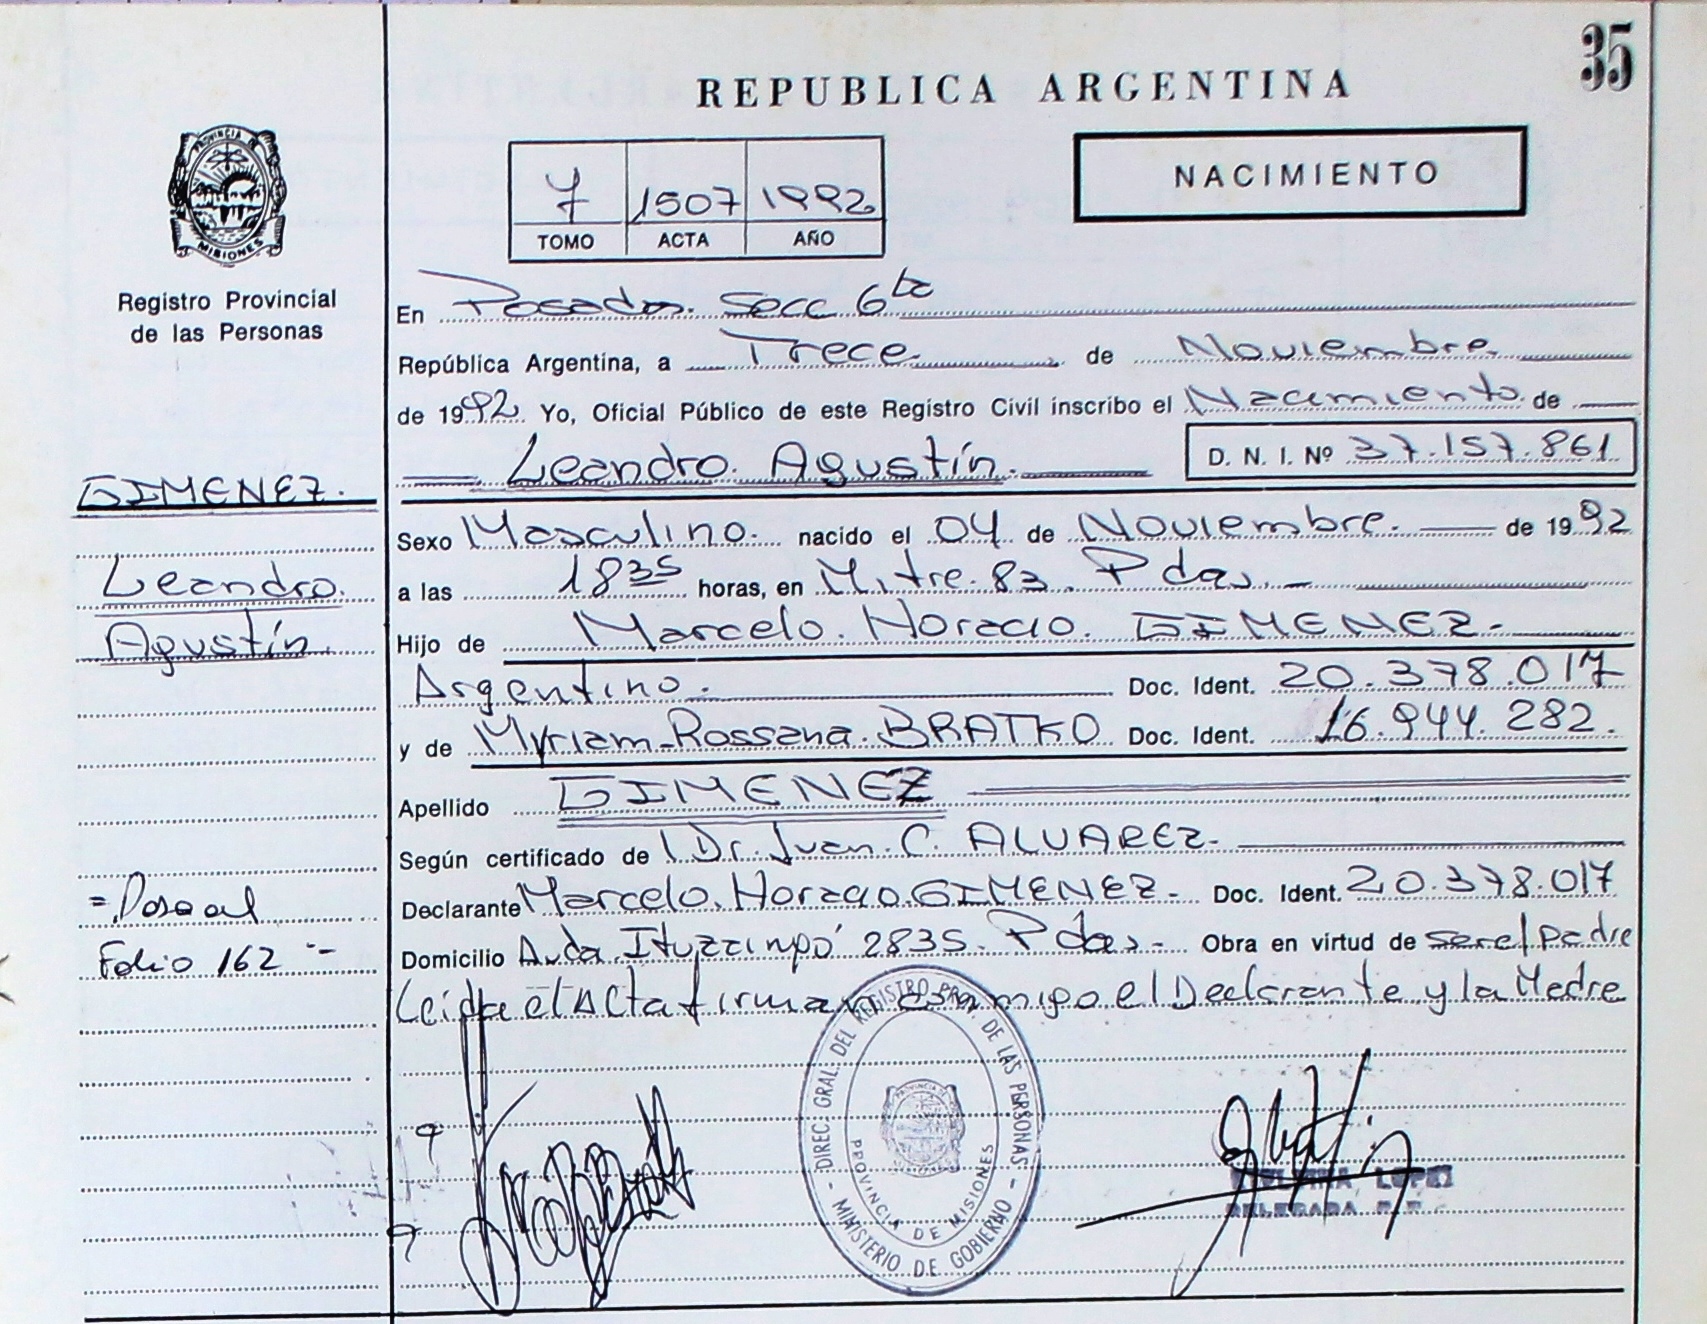 35
REPUBLICA ARGENTINA
PROVINCIA DE
MISIONES
Registro Provincial
de las Personas
7 1507 1992
TOMO ACTA AÑO
NACIMIENTO
En Posadas. Secc 6ta
República Argentina, a Trece de Noviembre
de 1992. Yo, Oficial Público de este Registro Civil inscribo el Nacimiento de
Leandro. Agustín. D. N. I. Nº 37.157.861
GIMENEZ.
Sexo Masculino. nacido el 04 de Noviembre. de 1992
Leandro.
a las 1835 horas, en Mitre. 83. Pdas.
Agustín.
Hijo de Marcelo. Horacio. GIMENEZ.-
Argentino. Doc. Ident. 20.378.017
y de Myriam-Rossana. BRATKO Doc. Ident. 16.944.282.
Apellido GIMENEZ
Según certificado de Dr. Juan. C. ALVAREZ.-
Declarante Marcelo. Horacio. GIMENEZ.- Doc. Ident. 20.378.017
= Pasa al
Folio 162 =
Domicilio Avda. Ituzaingó 2835. Pdas.- Obra en virtud de ser el padre
Leida el Acta firman conmigo el Declarante y la Madre
DIREC. GRAL. DEL REGISTRO PROV. DE LAS PERSONAS
- MINISTERIO DE GOBIERNO -
PROVINCIA DE MISIONES
LOPEZ
DELEGADA